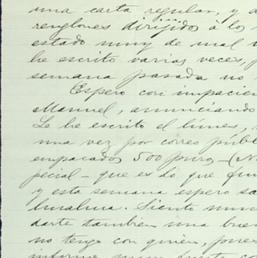 una carta regular, y a
renglones dirijidos á los
estado muy de mal
he escrito varias veces,
semana pasada no
Espero con impacien
Manuel, anunciando
Le he escrito el lúnes,
una vez por correo públi
empacado 500 puros — (N
pecial — que es lo que
y esta semana espero sa
Siento mu
darte tambien una bue
no tengo con quien, pues
informe muy